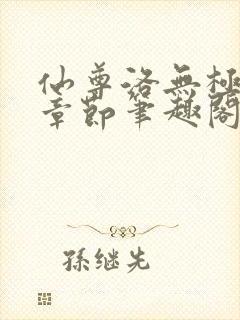 仙尊洛無極
章節筆趣閣
孫继先